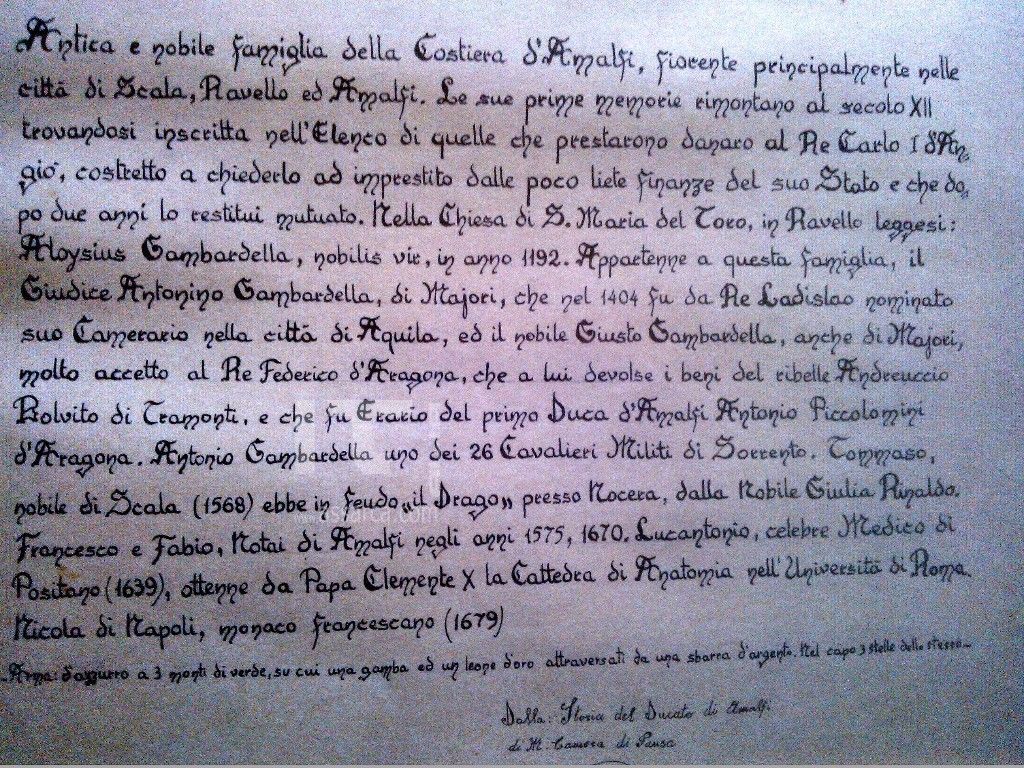 Antica e nobile famiglia della Costiera d'Amalfi, fiorente principalmente nelle
città di Scala, Ravello ed Amalfi. Le sue prime memorie rimontano al secolo XII
trovandosi inscritta nell'Elenco di quelle che prestarono danaro al Re Carlo I d'An-
giò, costretto a chiederlo ad imprestito dalle poco liete finanze del suo Stato e che do-
po due anni lo restituì mutuato. Nella Chiesa di S. Maria del Toro, in Ravello leggesi:
Aloysius Gambardella, nobilis vir, in anno 1192. Appartenne a questa famiglia, il
Giudice Antonino Gambardella, di Majori, che nel 1404 fu da Re Ladislao nominato
suo Camerario nella città di Aquila, ed il nobile Giusto Gambardella, anche di Majori,
molto accetto al Re Federico d'Aragona, che a lui devolse i beni del ribelle Andreuccio
Bolvito di Tramonti, e che fu Erario del primo Duca d'Amalfi Antonio Piccolomini
d'Aragona. Antonio Gambardella uno dei 26 Cavalieri Militi di Sorrento. Tommaso,
nobile di Scala (1568) ebbe in feudo „il Drago" presso Nocera, dalla Nobile Giulia Rinaldo.
Francesco e Fabio, Notai di Amalfi negli anni 1575, 1670. Lucantonio, celebre Medico di
Positano (1639), ottenne da Papa Clemente X la Cattedra di Anatomia nell'Università di Roma.
Nicola di Napoli, monaco francescano (1679)
Arma: d'azzurro a 3 monti di verde, su cui una gamba ed un leone d'oro attraversati da una sbarra d'argento. Nel capo 3 stelle dello stesso.
Dalla: Storia del Ducato di Amalfi
di M. Camera di Pansa